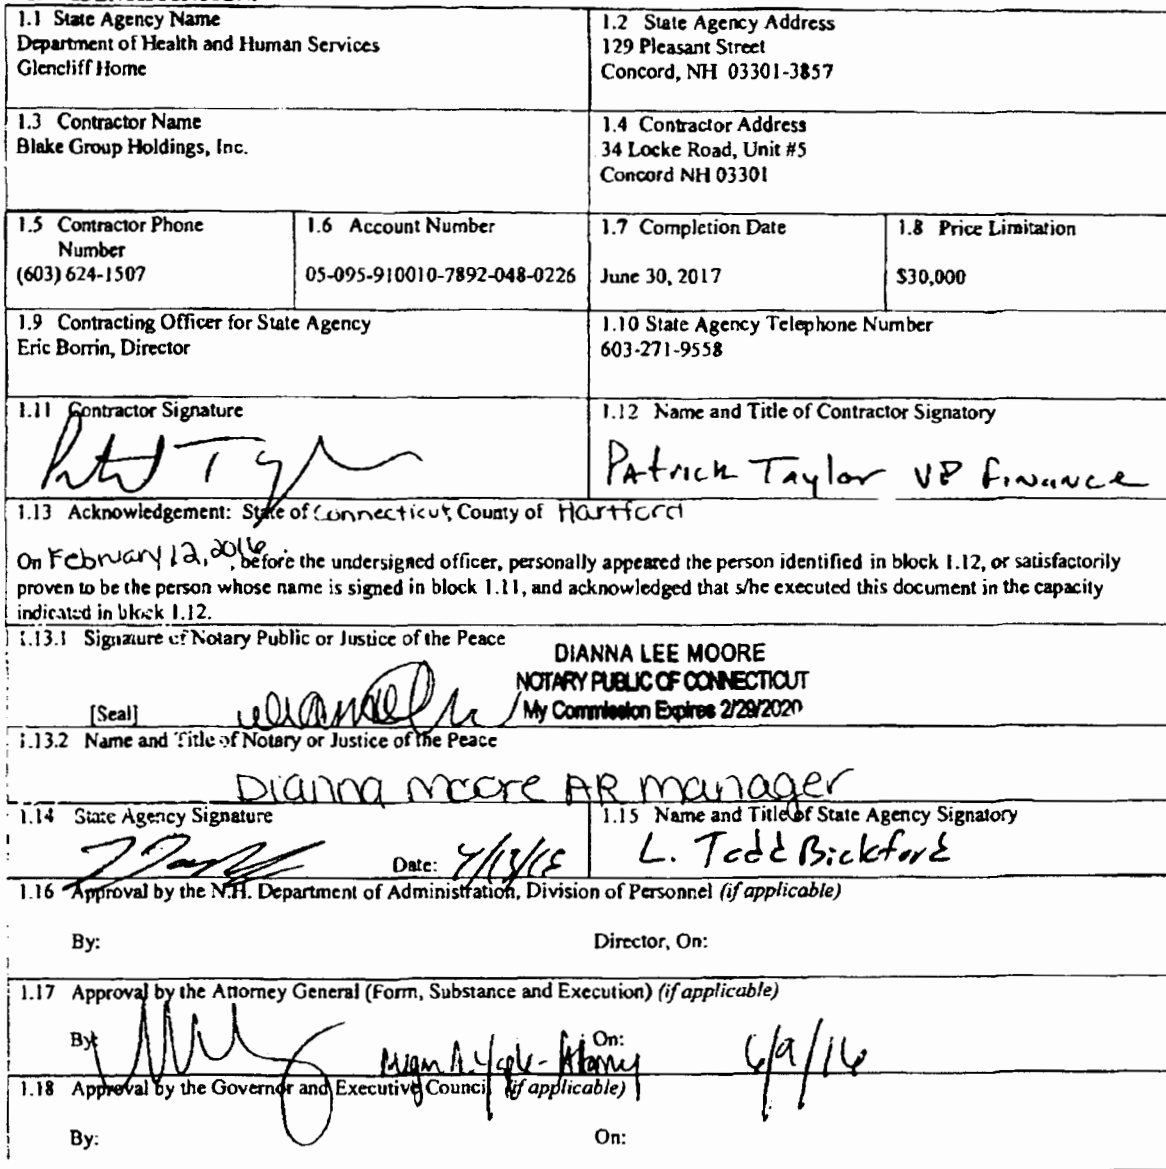 1.1 State Agency Name
Department of Health and Human Services
Glencliff Home
1.2 State Agency Address
129 Pleasant Street
Concord, NH 03301-3857
1.3 Contractor Name
Blake Group Holdings, Inc.
1.4 Contractor Address
34 Locke Road, Unit #5
Concord NH 03301
1.5 Contractor Phone
Number
(603) 624-1507
1.6 Account Number
05-095-910010-7892-048-0226
1.7 Completion Date
June 30, 2017
1.8 Price Limitation
$30,000
1.9 Contracting Officer for State Agency
Eric Borrin, Director
1.10 State Agency Telephone Number
603-271-9558
1.11 Contractor Signature
1.12 Name and Title of Contractor Signatory
Patrick Taylor VP Finance
1.13 Acknowledgement: State of Connecticut, County of Hartford
On February 12, 2016, before the undersigned officer, personally appeared the person identified in block 1.12, or satisfactorily
proven to be the person whose name is signed in block 1.11, and acknowledged that s/he executed this document in the capacity
indicated in block 1.12.
1.13.1 Signature of Notary Public or Justice of the Peace
DIANNA LEE MOORE
NOTARY PUBLIC OF CONNECTICUT
My Commission Expires 2/29/2020
[Seal]
1.13.2 Name and Title of Notary or Justice of the Peace
Dianna Moore AR Manager
1.14 State Agency Signature
Date:
1.15 Name and Title of State Agency Signatory
L. Todd Bickford
1.16 Approval by the N.H. Department of Administration, Division of Personnel (if applicable)
By: Director, On:
1.17 Approval by the Attorney General (Form, Substance and Execution) (if applicable)
By: On: 6/9/16
1.18 Approval by the Governor and Executive Council (if applicable)
By: On: